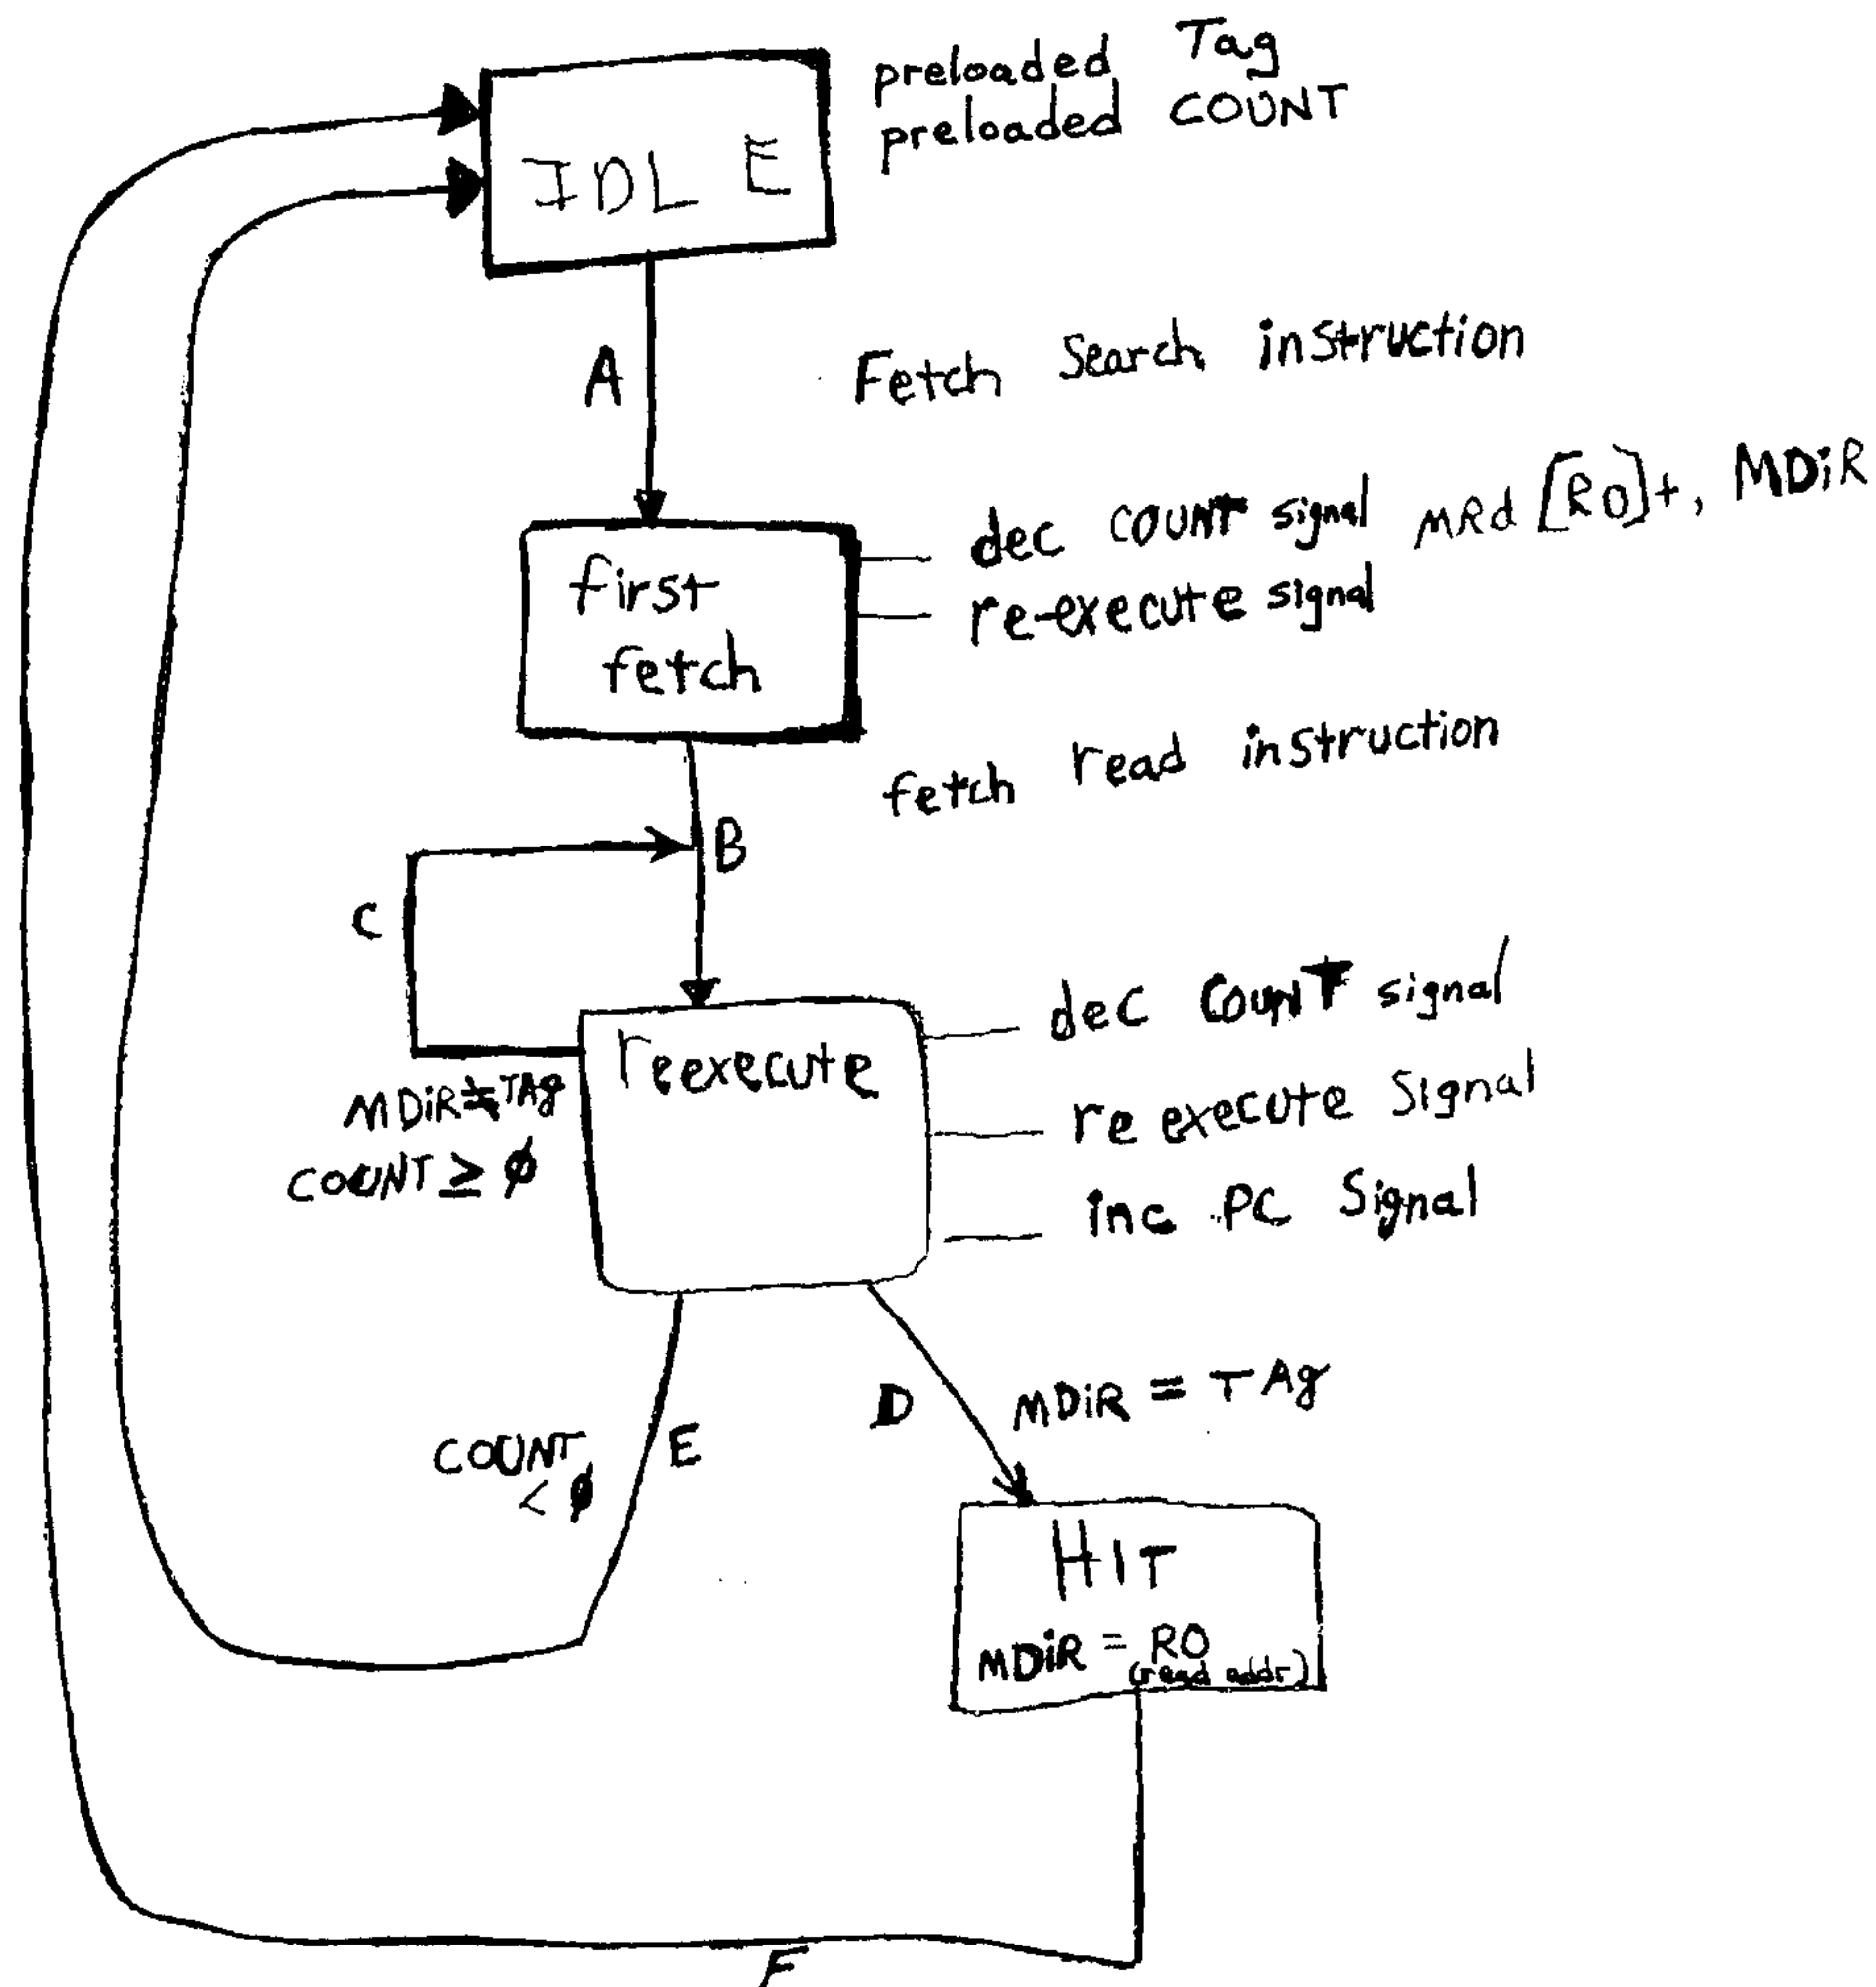 preloaded Tag
preloaded COUNT
IDLE
A
Fetch Search instruction
first
fetch
dec COUNT signal MRd [R0]+, MDiR
re-execute signal
fetch read instruction
B
C
reexecute
dec COUNT signal
re execute Signal
inc PC Signal
MDiR≠TAg
COUNT ≥ φ
D
MDiR = TAg
E
COUNT
< φ
HIT
MDiR = R0
(read addr)
F